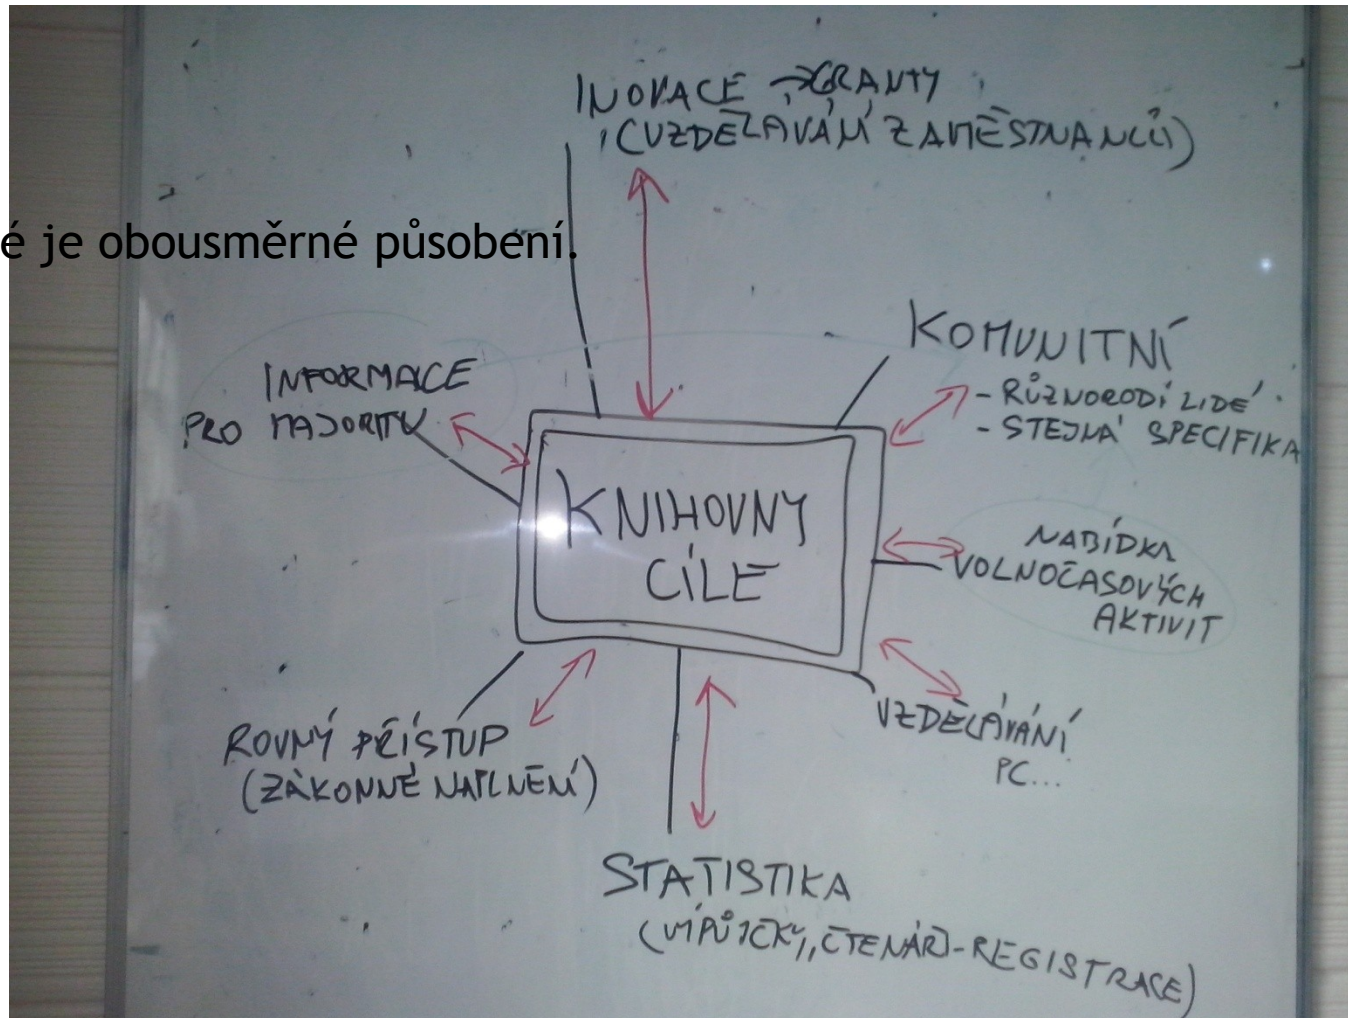 INOVACE → GRANTY
(VZDĚLÁVÁNÍ ZAMĚSTNANCŮ)
é je obousměrné působení.
KOMUNITNÍ
- RŮZNORODÍ LIDÉ
- STEJNÁ SPECIFIKA
INFORMACE
PRO MAJORITU
KNIHOVNY
CÍLE
NABÍDKA
VOLNOČASOVÝCH
AKTIVIT
VZDĚLÁVÁNÍ
PC...
ROVNÝ PŘÍSTUP
(ZÁKONNÉ NAPLNĚNÍ)
STATISTIKA
(VÝPŮJČKY, ČTENÁŘ - REGISTRACE)